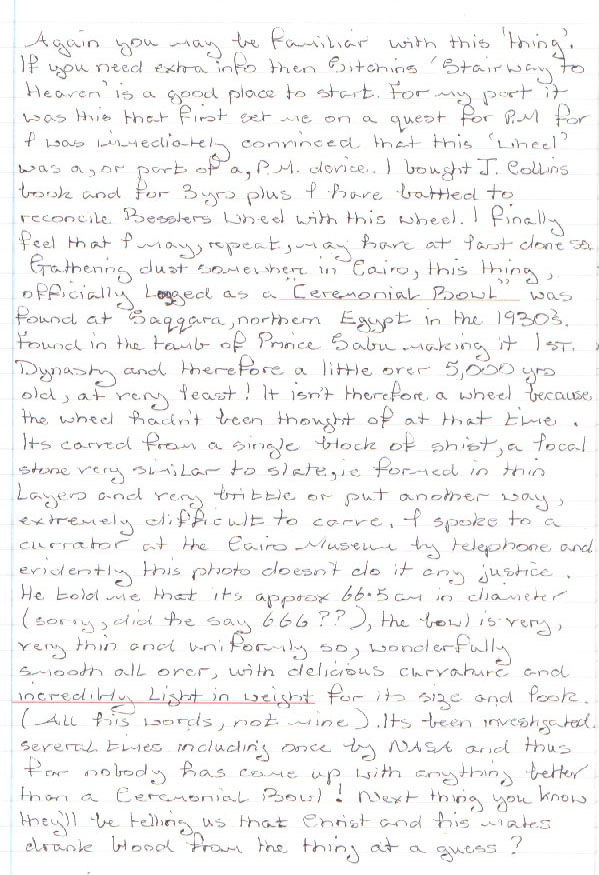 Again you may be familiar with this 'thing'.
If you need extra info then Sitchins 'Stairway to
Heaven' is a good place to start. For my part it
was this that first set me on a quest for P.M for
I was immediately convinced that this 'wheel'
was a, or part of a, P.M. device. I bought J. Collins
book and for 3yrs plus I have battled to
reconcile Besslers Wheel with this wheel. I finally
feel that I may, repeat, may have at last done so.
Gathering dust somewhere in Cairo, this thing,
officially Logged as a "Ceremonial Bowl" was
found at Saqqara, northern Egypt in the 1930s.
Found in the tomb of Prince Sabu making it 1st.
Dynasty and therefore a little over 5,000 yrs
old, at very least! It isn't therefore a wheel because
the wheel hadn't been thought of at that time.
Its carved from a single block of shist, a local
stone very similar to slate, ie formed in thin
Layers and very brittle or put another way,
extremely difficult to carve. I spoke to a
currator at the Cairo Museum by telephone and
evidently this photo doesn't do it any justice.
He told me that its approx 66.5cm in diameter
(sorry, did he say 666??), the bowl is very,
very thin and uniformly so, wonderfully
smooth all over, with delicious curvature and
incredibly Light in weight for its size and look.
(All his words, not mine). Its been investigated
several times including once by NASA and thus
far nobody has come up with anything better
than a Ceremonial Bowl! Next thing you know
they'll be telling us that Christ and his mates
drank blood from the thing at a guess?